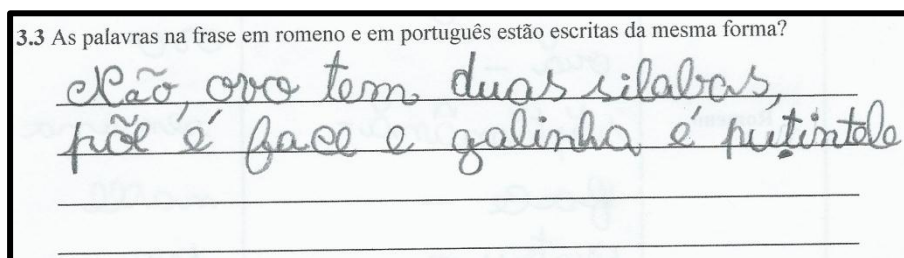 3.3 As palavras na frase em romeno e em português estão escritas da mesma forma?
Não, ovo tem duas silabas,
põe é face e galinha é puțintele